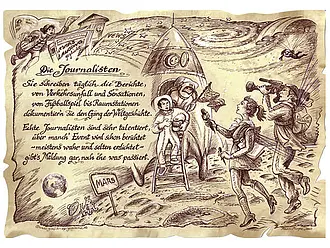 Die Journalisten
Sie schreiben täglich die Berichte,
von Verkehrsunfall und Sensationen,
von Fußballspiel bis Raumstationen
dokumentier'n sie den Gang der Weltgeschichte.
Echte Journalisten sind sehr talentiert,
über manch' Event wird schon berichtet
- meistens wahr und selten erdichtet -
gibt's Meldung gar, noch ehe was passiert.
MARS